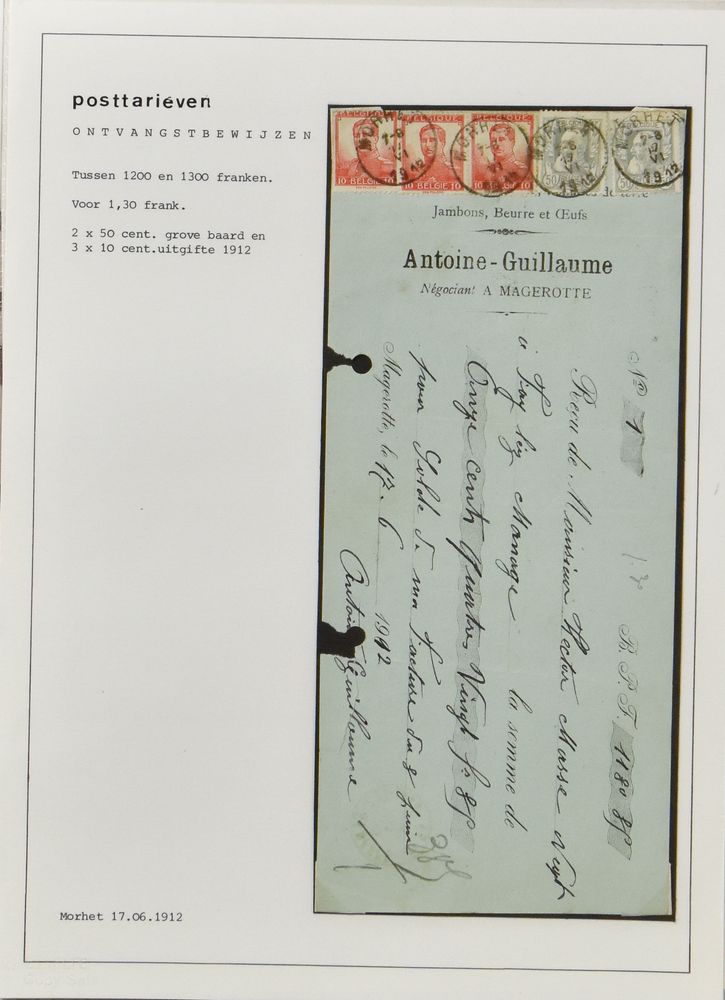 posttarieven
ONTVANGSTBEWIJZEN
Tussen 1200 en 1300 franken.
Voor 1,30 frank.
2 x 50 cent. grove baard en
3 x 10 cent.uitgifte 1912
BELGIQUE BELGIQUE
10 BELGIE 10 10 BELGIE 10 BELGIE 10
50 50
MORHET
7-8
17
VI
1912
MORHET
MORHET
MORHET
7-8
17
VI
1912
Jambons, Beurre et Œufs
Antoine-Guillaume
Négociant A MAGEROTTE
No 1 B. P. F. 1180 85
Reçu de Monsieur Hector Masse Negt
à Fay lez Manage la somme de
Onze cents quatre Vingt frs 85
pour Solde de ma facture du 8 Juin
Magerotte, le 17. 6 1912
Antoine Guillaume
Morhet 17.06.1912